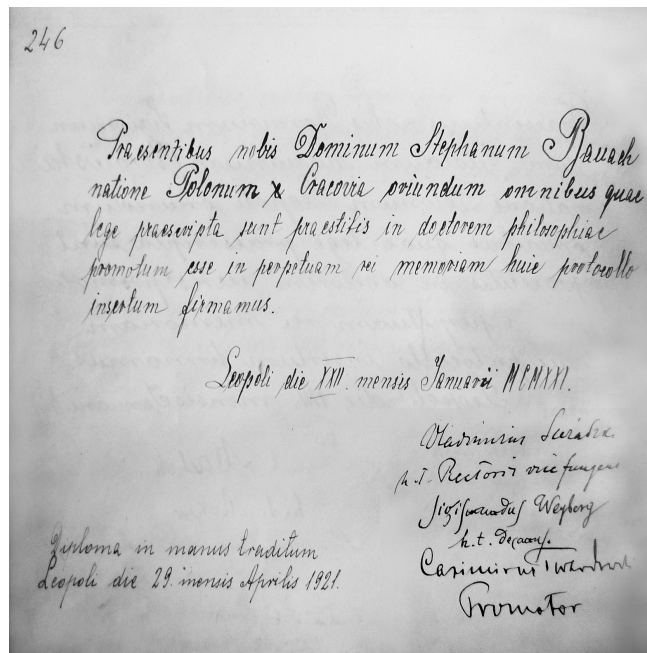 246
Praesentibus nobis Dominum Stephanum Banach
natione Polonum x Cracovia oriundum omnibus quae
lege praescripta sunt praestitis in doctorem philosophiae
promotum esse in perpetuam rei memoriam huic protocollo
insertum firmamus.
Leopoli die XXII. mensis Januarii MCMXXI.
Vladimirus
h. t. Rectoris vice fungens
Sigismundus Weyberg
h. t. decanus.
Casimirus Twardowski
Promotor
Diploma in manus traditum
Leopoli die 29. mensis Aprilis 1921.